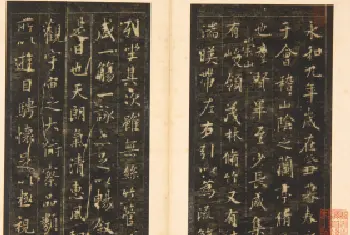 永和九年歲在癸丑暮春
于會稽山陰之蘭亭脩
也羣賢畢至少長咸集
崇山
有峻領茂林脩竹又有
湍暎帶左右引以為流
列坐其次雖無絲竹管
盛一觴一詠亦足以暢敘
是日也天朗氣清惠風
觀宇宙之大俯察品類
所以遊目騁懷足以極視